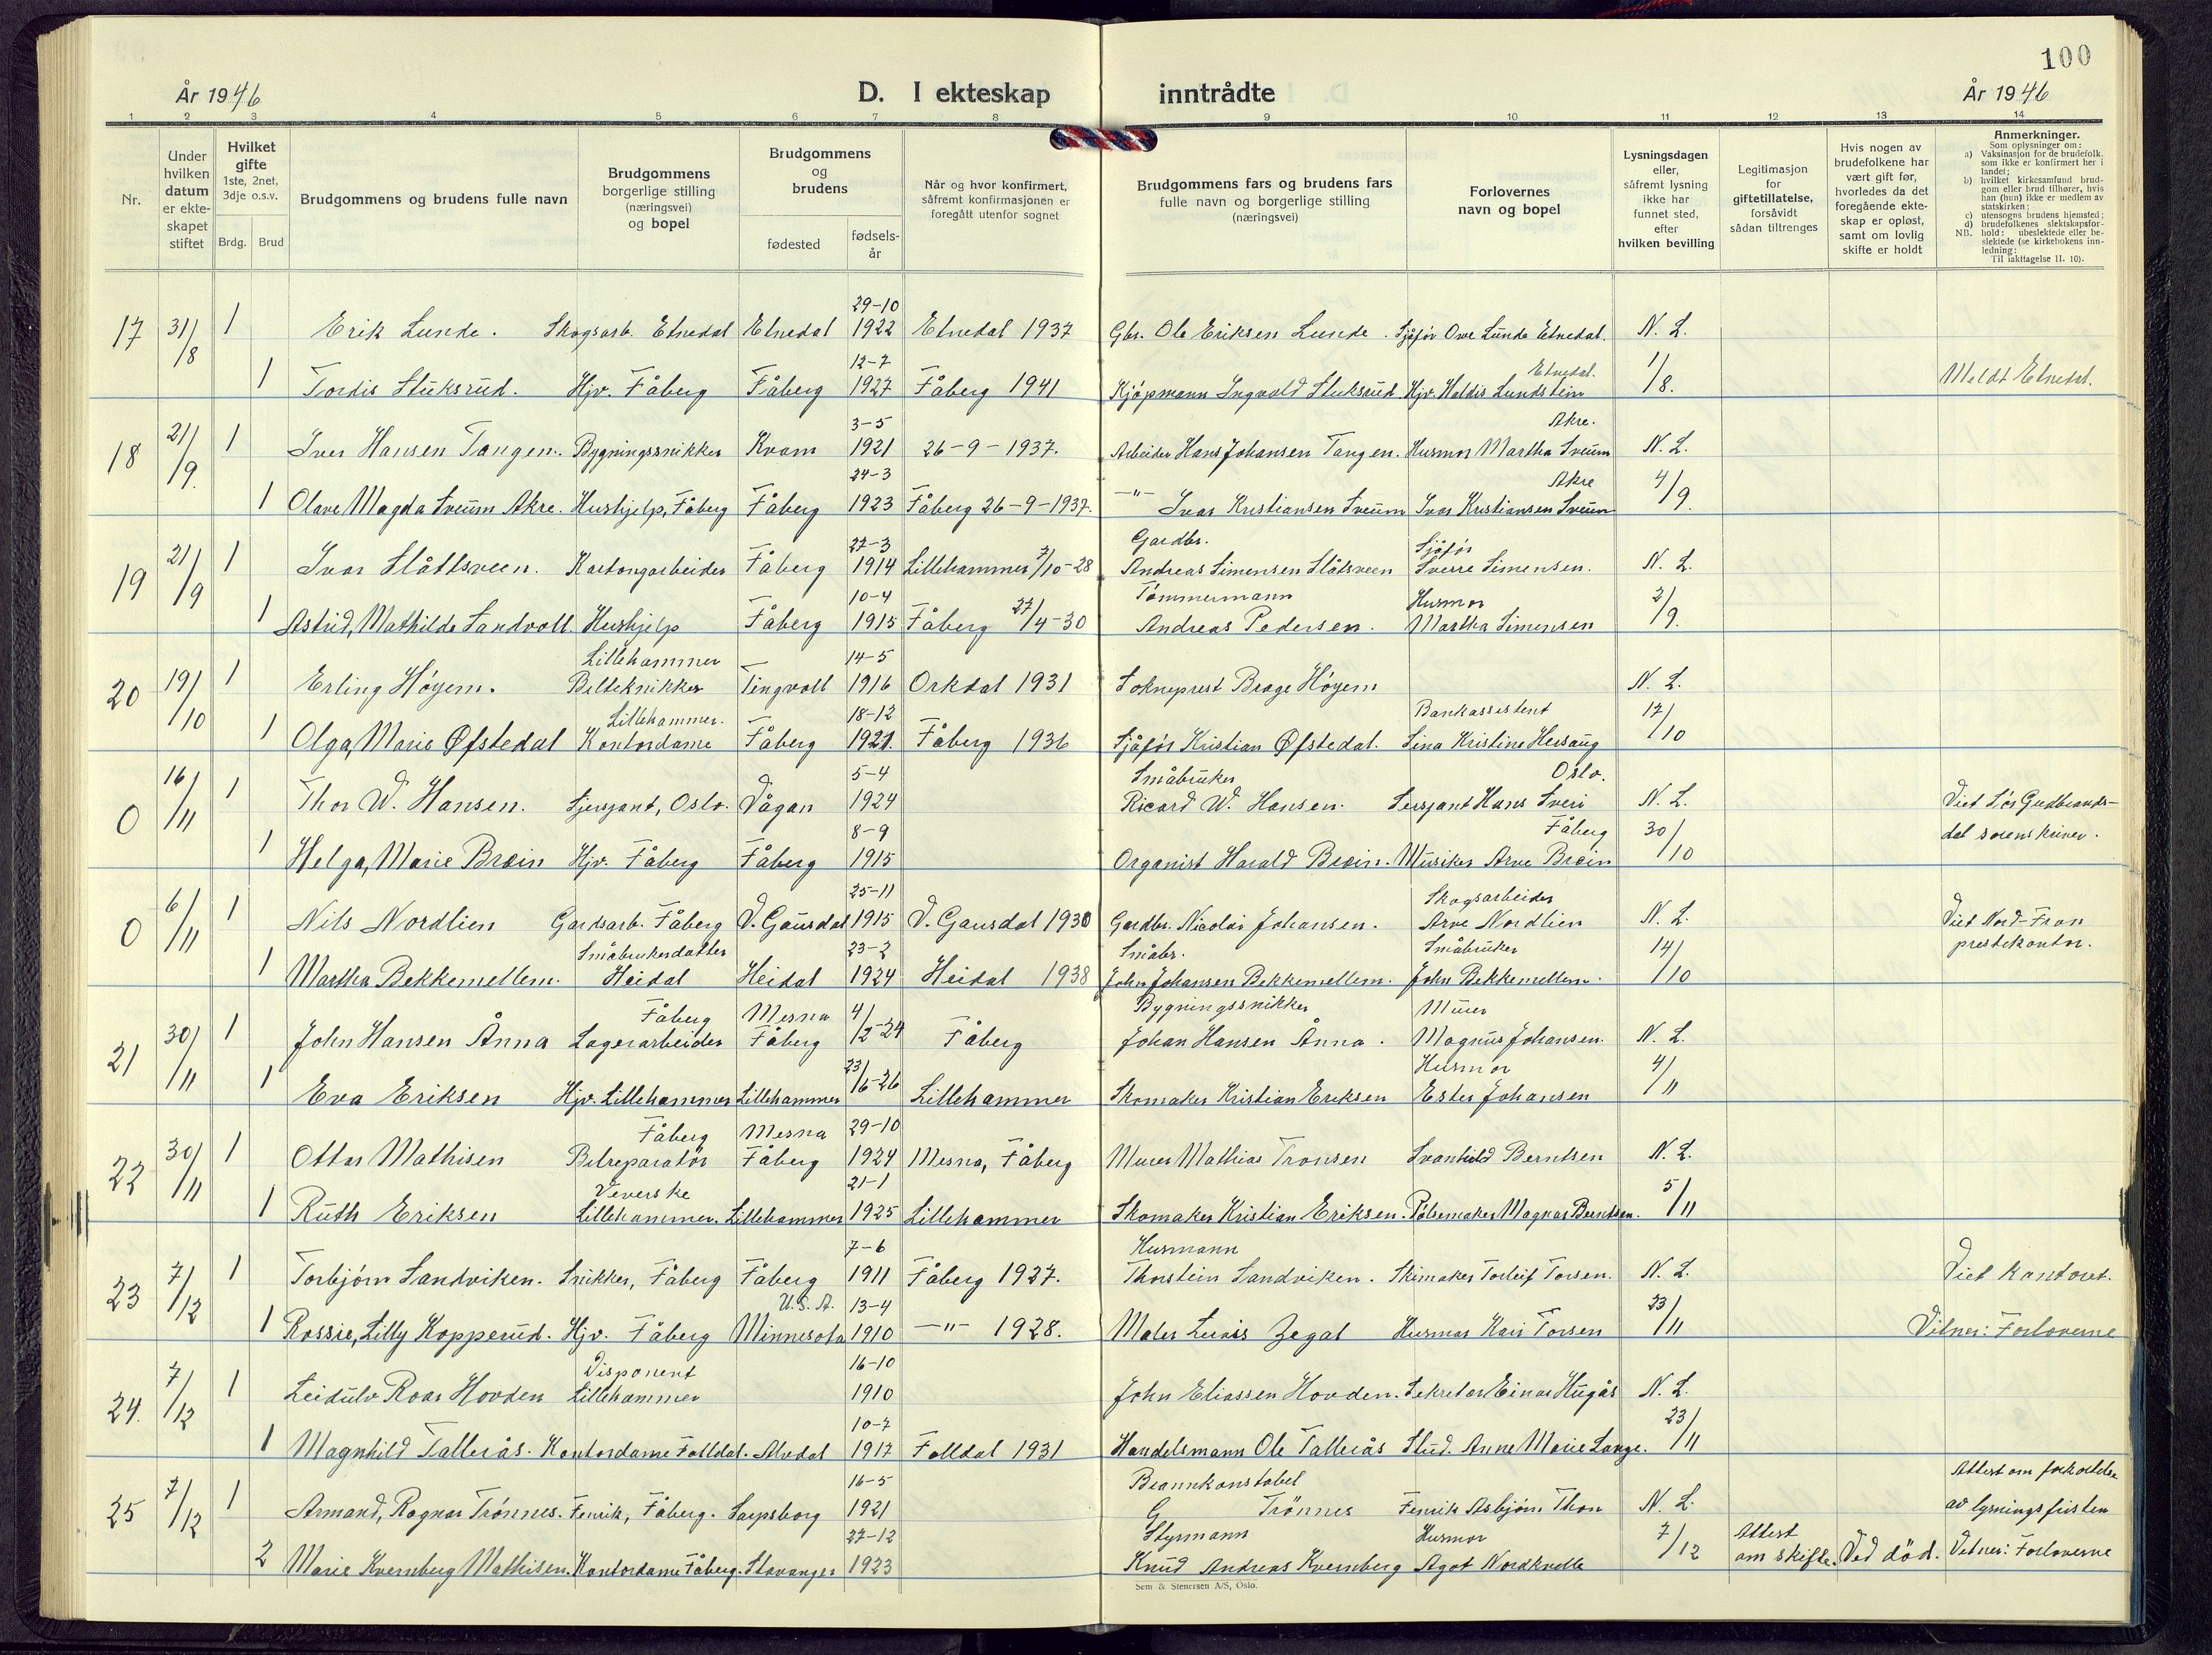 100
År 1946
D. I ekteskap inntrådte
År 1946
1 2 3 4 5 6 7 8 9 10 11 12 13 14
Nr.
Under hvilken datum er ekte-skapet stiftet
Hvilket gifte 1ste, 2net, 3dje o.s.v.
Brdg. Brud
Brudgommens og brudens fulle navn
Brudgommens borgerlige stilling (næringsvei) og bopel
Brudgommens og brudens
fødested
fødsels-år
Når og hvor konfirmert, såfremt konfirmasjonen er foregått utenfor sognet
Brudgommens fars og brudens fars fulle navn og borgerlige stilling (næringsvei)
Forlovernes navn og bopel
Lysningsdagen eller, såfremt lysning ikke har funnet sted, efter hvilken bevilling
Legitimasjon for giftetillatelse, forsåvidt sådan tiltrenges
Hvis nogen av brudefolkene har vært gift før, hvorledes da det foregående ekte-skap er opløst, samt om lovlig skifte er holdt
Anmerkninger.
Som oplysninger om:
a) Vaksinasjon for de brudefolk, som ikke er konfirmert her i landet;
b) hvilket kirkesamfund brud-gom eller brud tilhører, hvis han (hun) ikke er medlem av statskirken;
c) utensogns brudens hjemsted;
d) brudefolkenes slektskapsfor-hold: ubeslektede eller be-slektede (se kirkebokens inn-ledning:
NB.
Til iakttagelse II. 10).
17 31/8 1 Erik Lunde. Skogsarb. Etnedal Etnedal 29-10 1922 Etnedal 1937 Gbr. Ole Eriksen Lunde. Sjåfør Ove Lunde Etnedal. N. L.
1 Tordis Stuksrud. Hjv. Fåberg Fåberg 12-7 1927 Fåberg 1941 Kjøpmann Ingvald Stuksrud Hjv. Haldis Lundstein Etnedal. 1/8. Meldt Etnedal.
18 21/9. 1 Iver Hansen Tangen. Bygningssnikker Kvam 3-5 1921 26-9-1937. Arbeider Hans Johansen Tangen. Husmor Martha Sveum Akre. N. L.
1 Olave Magda Sveum Akre. Hushjelp, Fåberg Fåberg 24-3 1923 Fåberg 26-9-1937. -"- Ivar Kristiansen Sveum Ivar Kristiansen Sveum Akre 4/9.
19 21/9 1 Ivar Slåttsveen. Kartongarbeider Fåberg 27-3 1914 Lillehammer 7/10-28 Gardbr. Andreas Simensen Slåtsveen Sjåfør Sverre Simensen. N. L.
1 Astrid, Mathilde Sandvoll. Hushjelp Fåberg 10-4 1915 Fåberg 27/4-30 Tømmermann Andreas Pedersen. Husmor Martha Simensen 2/9.
20 19/10 1 Erling Høyem. Lillehammer Bilteknikker Tingvoll 14-5 1916 Orkdal 1931 Sokneprest Brage Høyem N. L.
1 Olga, Marie Øfstedal Lillehammer. Kontordame Fåberg 18-12 1921. Fåberg 1936 Sjåfør Kristian Øfstedal. Bankassistent Lina Kristine Hersaug 17/10
0 16/11 1 Thor W. Hansen. Sjersjant, Oslo. Vågan 5-4 1924 Småbruker Ricard W. Hansen. Sersjant Hans Sveri Oslo. N. L. Viet Sør Gudbrands-
1 Helga, Marie Bræin Hjv. Fåberg Fåberg 8-9 1915 Organist Harald Bræin. Musiker Arve Bræin Fåberg 30/10 dal sorenskriver.
0 6/11 1 Nils Nordlien Gardsarb. Fåberg V. Gausdal 25-11 1915 V. Gausdal 1930 Gardbr. Nicolai Johansen. Skogsarbeider Arve Nordlien N. L. Viet Nord-Fron
1 Martha Bekkemellem. Småbrukerdatter Heidal Heidal 23-2 1924 Heidal 1938 Småbr. John Johansen Bekkemellem. Småbruker John Bekkemellem. 14/10 prestekontor.
21 30/11 1 John Hansen Ånna Fåberg Lagerarbeider Mesna Fåberg 4/2-24 Fåberg Bygningssnikker Johan Hansen Ånna. Murer Magnus Johansen. N. L.
1 Eva Eriksen Hjv. Lillehammer Lillehammer 23/6-26 Lillehammer Skomaker Kristian Eriksen Husmor Ester Johansen 4/11
22 30/11 1 Ottar Mathisen Fåberg Bilreparatør Mesna Fåberg 29-10 1924 Mesna, Fåberg Murer Mathias Tronsen Svanhild Berntsen N. L.
1 Ruth Eriksen Veverske Lillehammer. Lillehammer 21-1 1925 Lillehammer Skomaker Kristian Eriksen. Pølsemaker Magnar Berntsen. 5/11
23 7/12 1 Torbjørn Sandviken. Snikker, Fåberg Fåberg 7-6 1911 Fåberg 1927. Husmann Thorstein Sandviken. Skimaker Torleif Torsen. N. L. Viet kontoret.
1 Rossie, Lilly Kopperud. Hjv. Fåberg U.S.A. Minnesota 13-4 1910 -"- 1928. Maler Luvis Zegal Husmor Kari Torsen 23/11 Vitner: Forloverne
24. 7/12 1 Leidulv Roar Hovden Disponent Lillehammer 16-10 1910 John Eliassen Hovden. Sekretær Einar Hugås N. L.
1 Magnhild Tallerås. Kontordame Folldal. Alvdal 10-7 1917 Folldal 1931 Handelsmann Ole Tallerås Stud. Anne Marie Lange. 23/11
25 7/12 1 Armand, Ragnar Trønnes. Fenrik, Fåberg. Sarpsborg 16-5 1921 Brannkonstabel G Trönnes Fenrik Asbjørn Thon N. L. Attest om forkortelse av lysningsfristen
2 Marie Kvernberg Mathisen. Kontordame Fåberg. Stavanger 27-12 1923 Styrmann Knud Andreas Kvernberg Husmor Agot Nordkvelle 7/12 Attest om skifte. Ved död. Vitner: Forloverne
Sem & Stenersen A/S, Oslo.